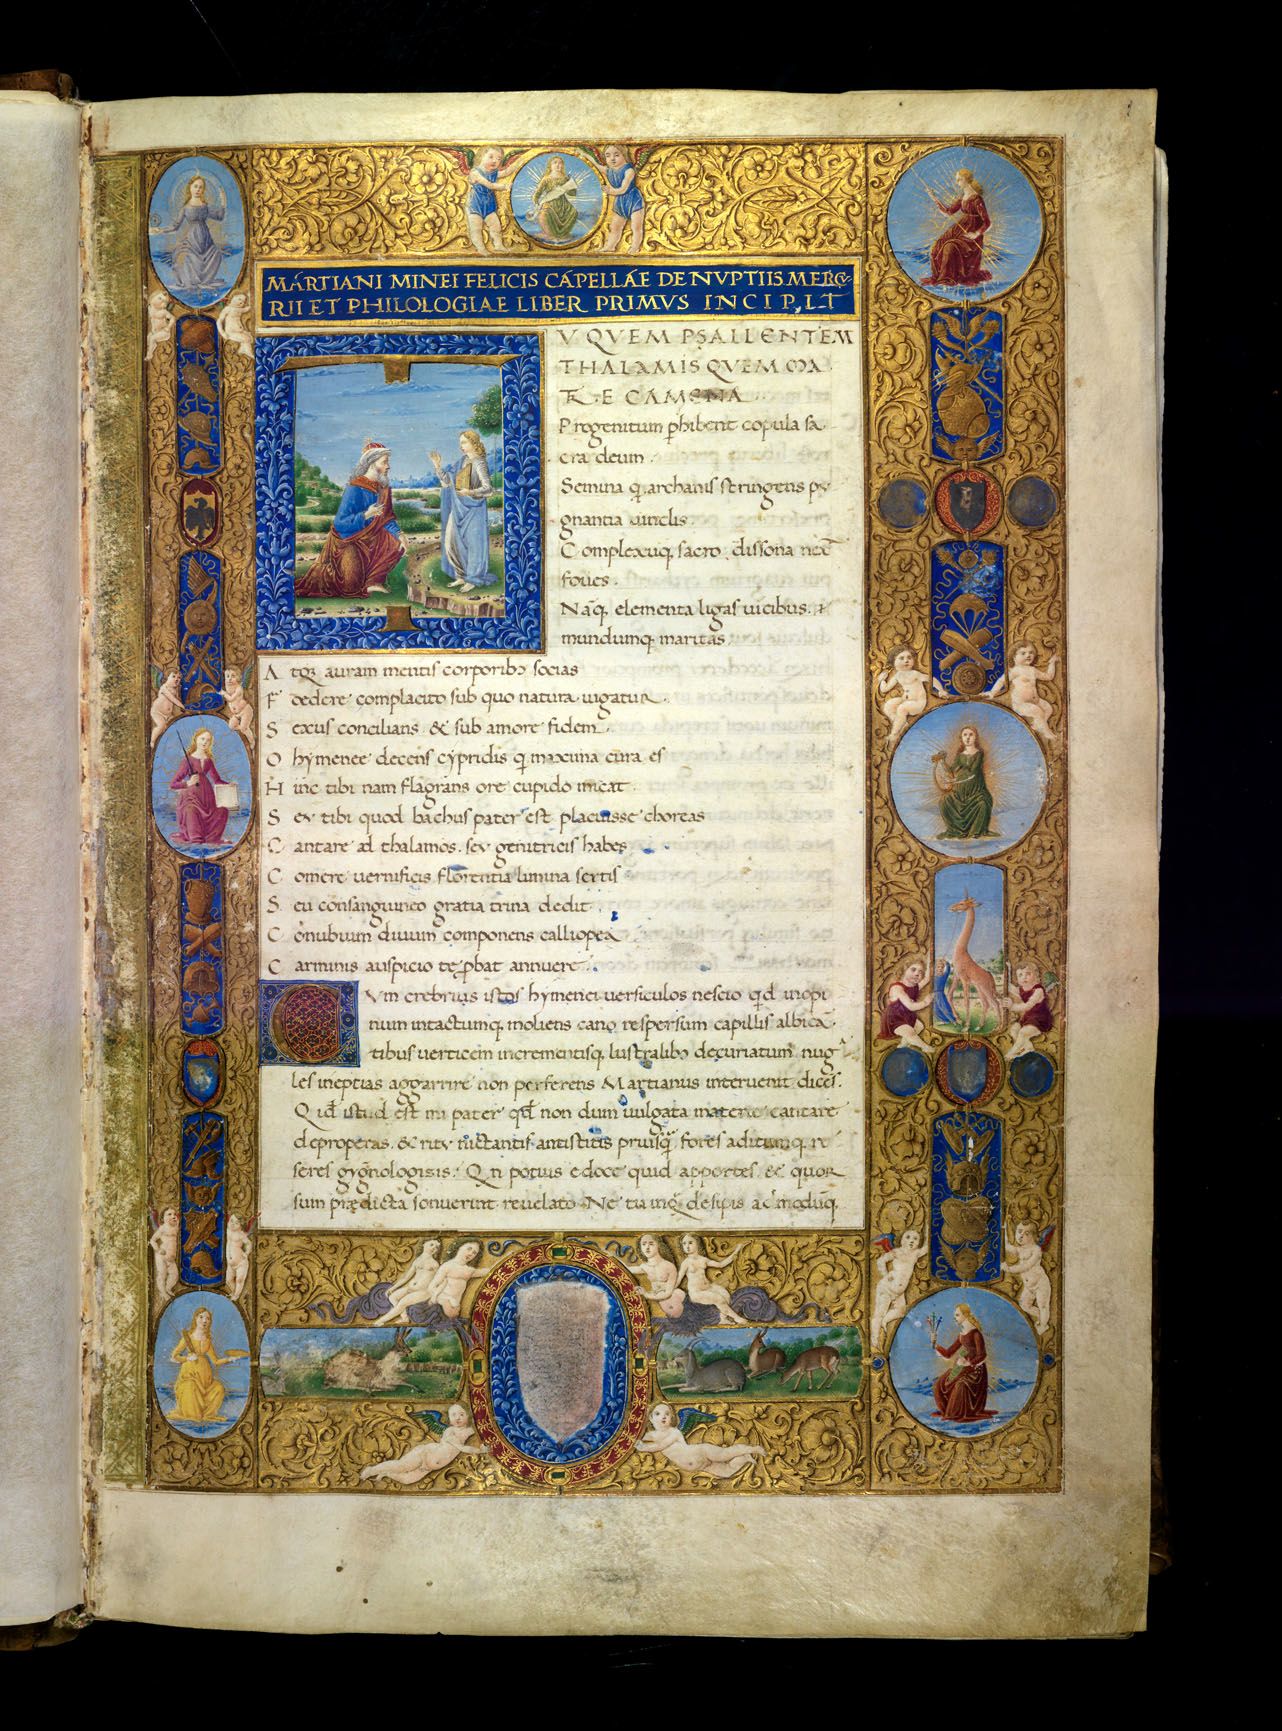 MARTIANI MINEI FELICIS CAPELLAE DE NVPTIIS MERCV-
RII ET PHILOLOGIAE LIBER PRIMVS INCIPIT
V QVEM PSALLENTEM
THALAMIS QVEM MA
TRE CAMENA
Progenitum phibent copula sa
cra deum.
Semina q archanis stringens pu
gnantia uinclis
Complexuq sacro dissona nex
foues.
Naq elementa ligas uicibus
mundumq maritas
Atqz auram mentis corporibo socias
Federe complacito sub quo natura iugatur.
Sexus concilians & sub amore fidem
O hymenee decens cypridis q maxima cura es
Hinc tibi nam flagrans ore cupido micat
Seu tibi quod bachus pater est placuisse choreas
Cantare ad thalamos. seu genitricis habes
Comere uernificis florentia limina sertis
Seu consanguineo gratia trina dedit.
Conubium diuum componens calliopea
Carminis auspicio te pbat annuere.
Vm crebrius istos hymenei uersiculos nescio qd inopi
num intactumq moliens cano respersum capillis albica
tibus uerticem incrementisq lustralibo decuriatum nug
les ineptias aggarrire non perferens Martianus interuenit dices.
Qid istud est mi pater qd non dum uulgata materie cantare
deproperas. & ritu nictantis antistitis priusq fores aditumq re
seres gygnologisis. Qn potius edoce quid apportes. & quor
sum praedicta sonuerint reuelato. Ne tu inq desipis admodumq